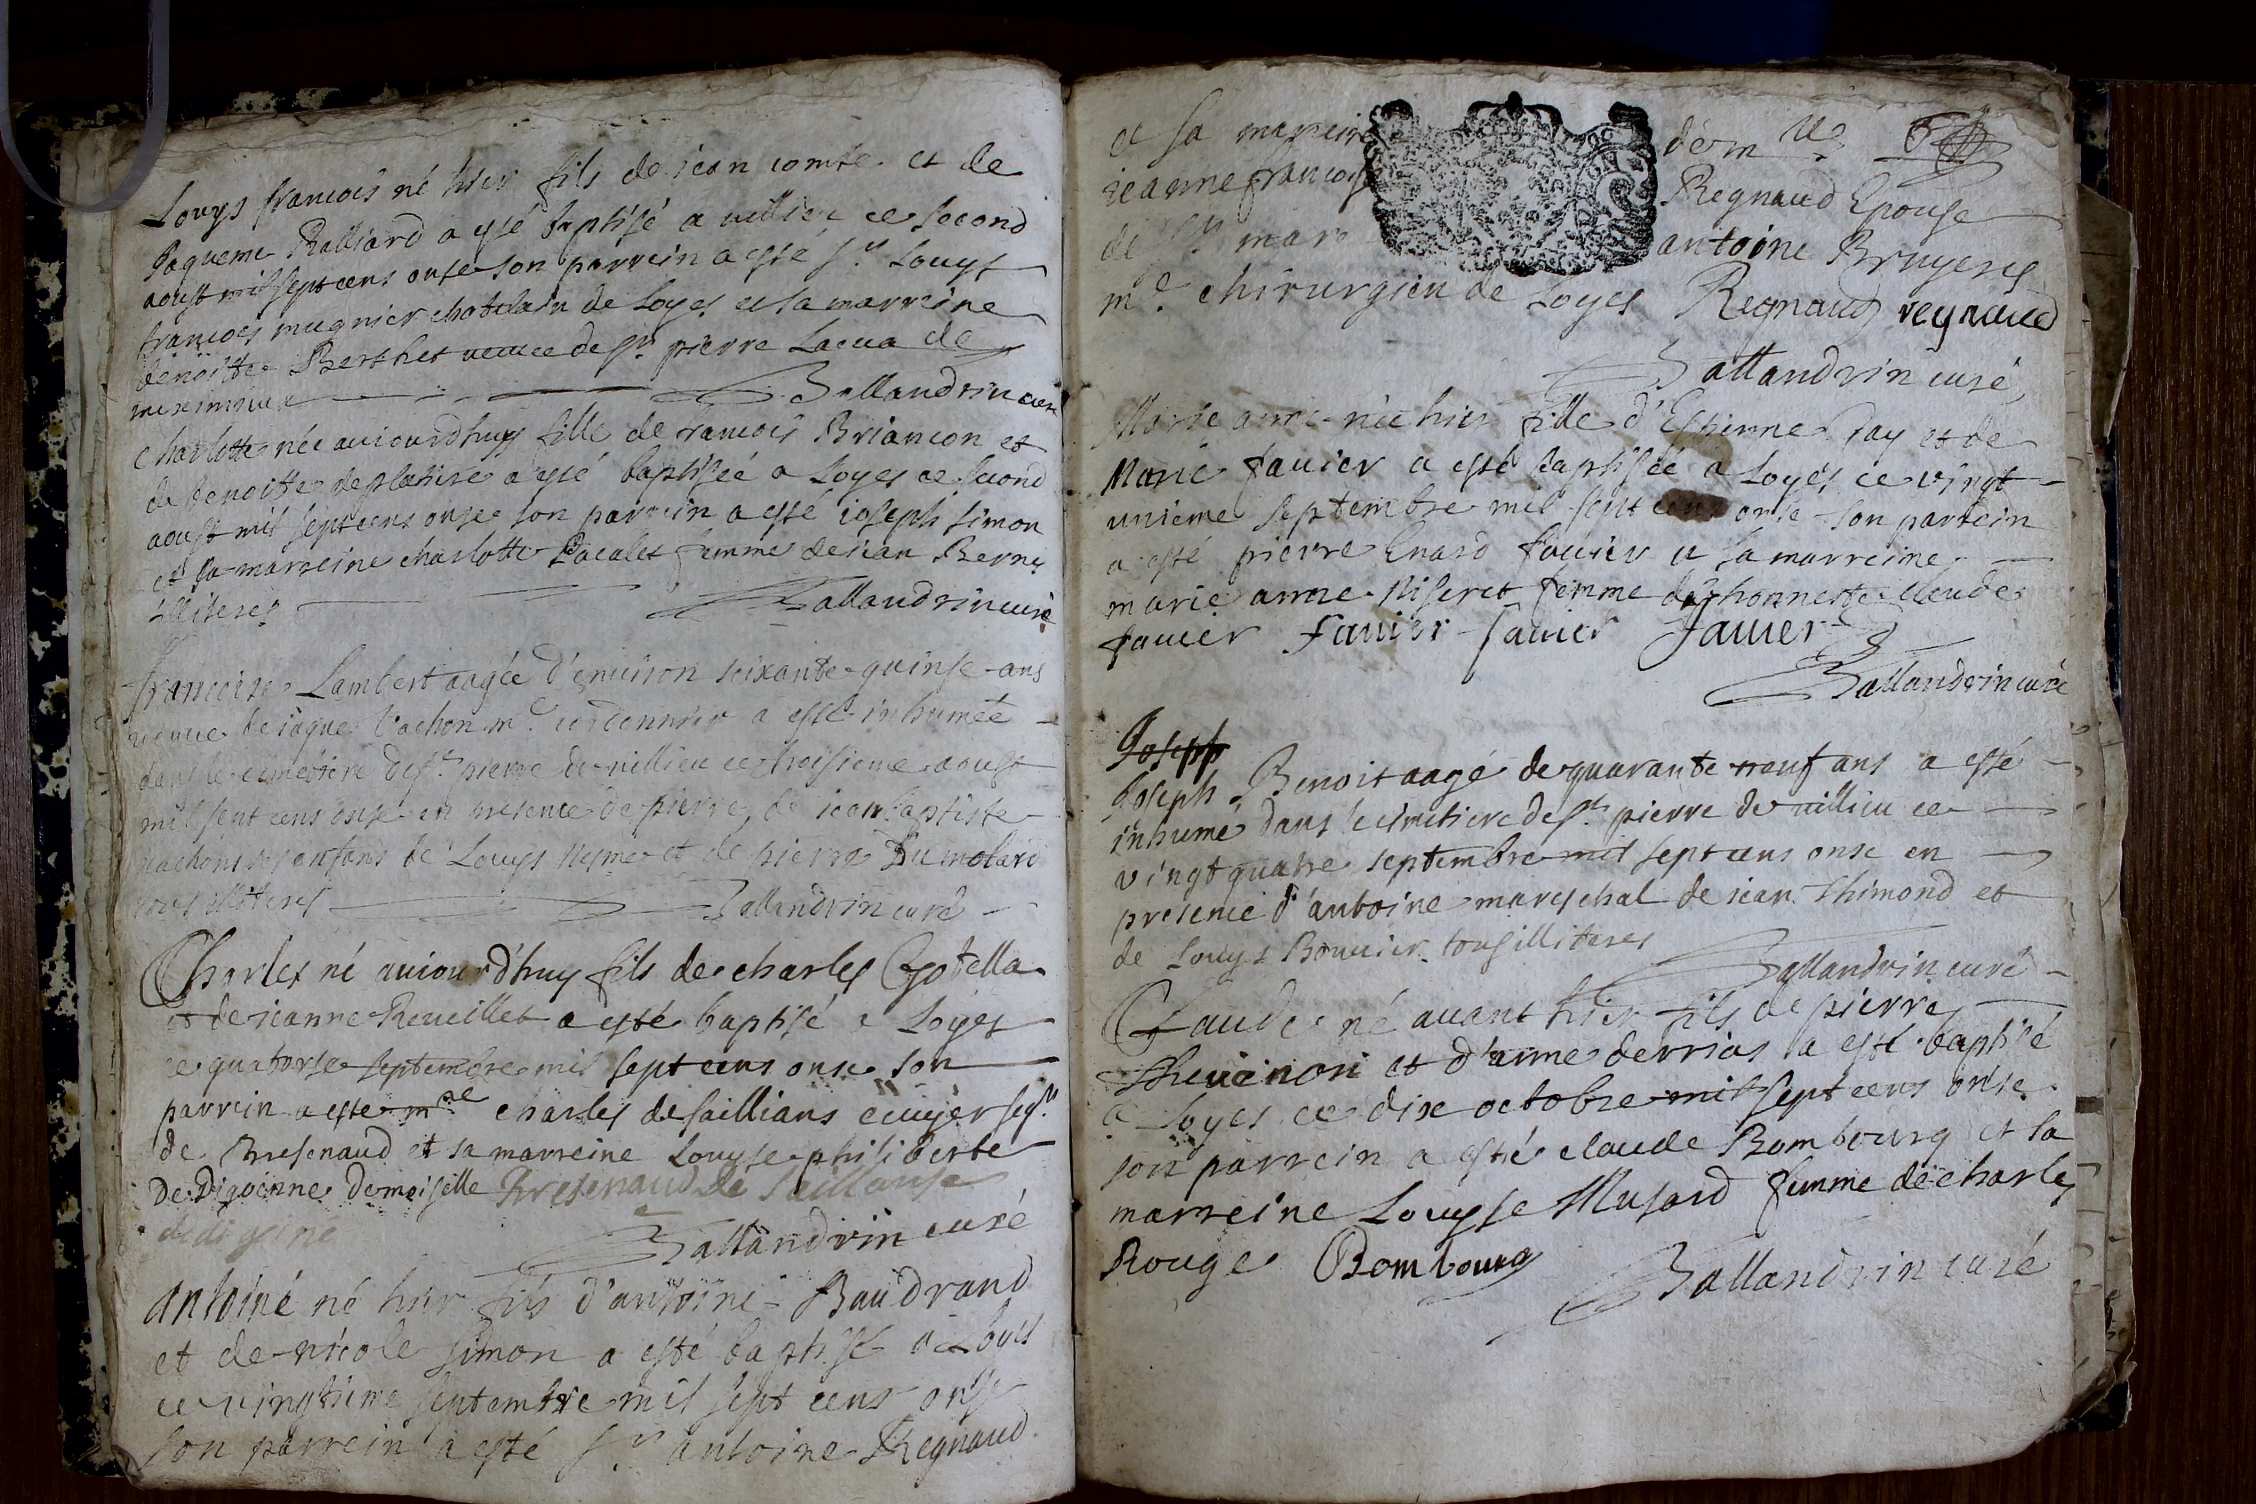 Louys francois né hier fils de jean comte et de
Jaqueme Ralliard a esté baptisé a villieu ce second
aoust mil sept cens onse son parrein a esté sr Louys
francois mugnier chatelain de Loyes et sa marreine
benoitte Berthet veuve de sr pierre Lacua de
meximieux Ballandrin curé
charlotte née aujourdhuy fille de francois Briancon et
de benoitte deplatire a esté baptiséé a Loyes ce second
aoust mil sept cens onse son parrein a esté joseph simon
et sa marreine charlotte Pacalet femme de jean Berne
illiteres Ballandrin curé
francoise Lambert aagée d'environ soixante quinse ans
veuve de jaque Vachon me cordonnier a esté inhuméé
dans le cimetiere de st pierre de villieu ce troisieme aoust
mil sept cens onse en presence de pierre, de jean baptiste
vachons ses enfans de Louys Neyme et de pierre Dumolard
tous illiteres Ballandrin curé
Charles né aujourd'huy fils de charles Gobella
et de jeanne Reveillet a esté baptisé a Loyes
ce quatorse septembre mil sept cens onse son
parrein a esté mre charles de saillians ecuyer segr
de Bresenaud et sa marreine Louyse philiberte
De Digoinne Demoiselle Bresenaud de Saillans
de digoine
Ballandrin curé
Antoine né hier fils d'antoine Baudrand
et de nicole simon a esté baptisé a Loyes
ce vingtieme septembre mil sept cens onse
son parrein a esté sr antoine Regnaud
et sa marreine demlle
jeanne francoise Regnaud Epouse
de sr marc antoine Bruyeres
me chirurgien de Loyes Regnaud regnaud
Ballandrin curé
Marie anne née hier fille d'Estienne Jay et de
Marie favier a esté baptiséé a Loyes ce vingt
unieme septembre mil sept cens onse son parrein
a esté pierre Enard favier et sa marreine
marie anne Niseret femme de honneste claude
favier Favier favier Favier
Ballandrin curé
Joseph
Joseph Benoit aagé de quarante neuf ans a esté
inhumé dans le cimetiere de st pierre de villieu ce
vingt quatre septembre mil sept cens onse en
presence d'antoine mareschal de jean Thimond et
de Louys Bouvier tous illiteres
Ballandrin curé
Claude né avant hier fils de pierre
Thevenon et d'anne derrias a esté baptisé
a Loyes ce dix octobre mil sept cens onse
son parrein a esté claude Bombourg et sa
marreine Louyse Musard femme de charles
Rouge Bombourg
Ballandrin curé